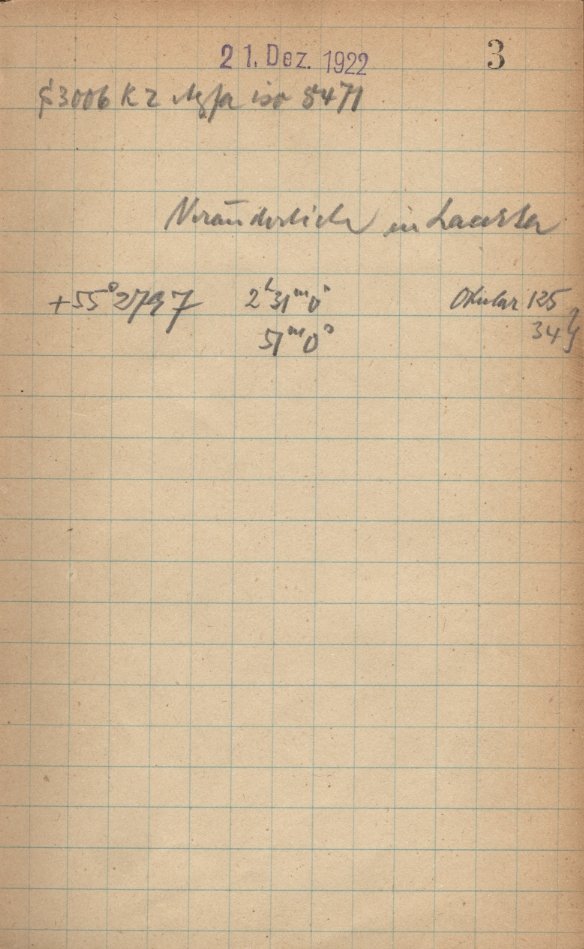 21. Dez. 1922 3
3006 K 2 Agfa iso 8471
Veränderlich in Lacerta
+55°2797 2ʰ31ᵐ0ˢ Okular 125
51ᵐ0ˢ 34